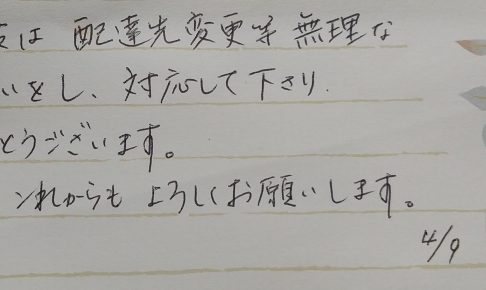 は 配達先変更等 無理な
いをし、対応して下さり
とうございます。
これからも よろしくお願いします。
4/9